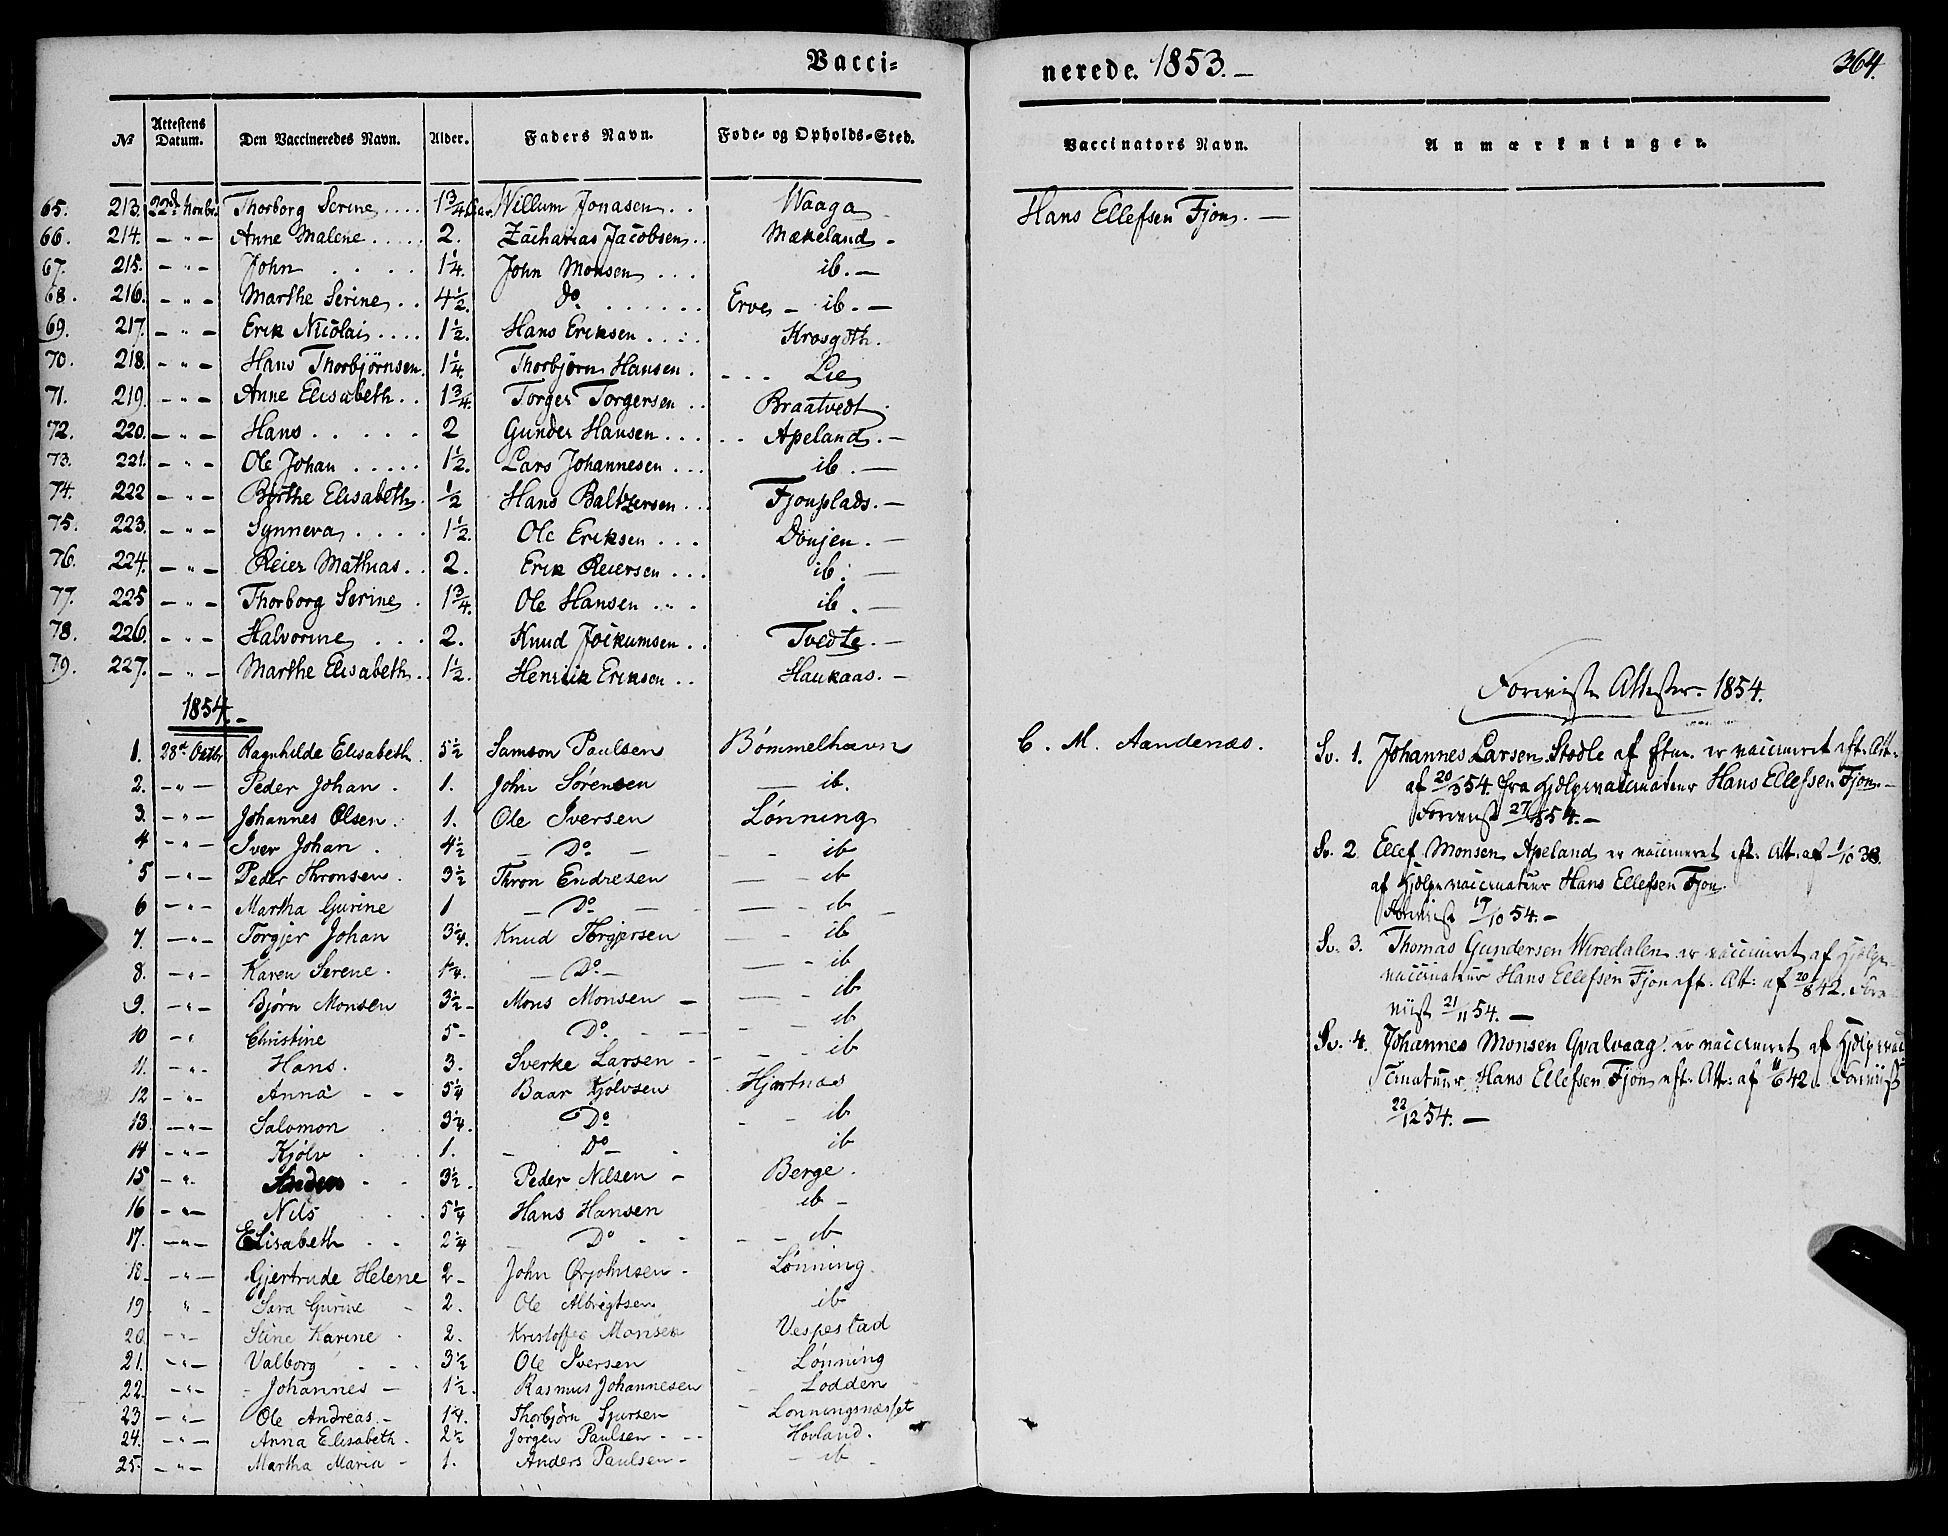 Vacci- nerede. 1853. — 364.
№ Attestens Datum. Den Vaccineredes Navn. Alder. Faders Navn. Føde- og Opholds-Sted. Vaccinators Navn. Anmærkninger.
65. 213. 22nd Novbr. Thorborg Serine .... 1 3/4 Aar. Willum Jonasen .. Waaga Hans Ellefsen Fjon. —
66. 214. — " — Anne Malene ..... 2. Zacharias Jacobsen .. Mækeland -
67. 215. — " — John .... 1 1/4. John Monsen ... ib. —
68. 216. — " — Marthe Serine .. 4 1/2. Do ...... Erve - ib. —
69. 217. — " — Erik Nicolai .... 1 1/2. Hans Eriksen .... Krosgöth.
70. 218. — " — Hans Thorbjörnsen. 1 1/4. Thorbjørn Hansen. --- Lie
71. 219. — " — Anne Elisabeth .. 1 3/4. Torger Torgersen .. Braatvedt
72. 220. — " — Hans ..... 2 Gunder Hansen ... .. Apeland. —
73. 221. — " — Ole Johan ..... 1 1/2. Lars Johannesen ... ib. —
74. 222 — " — Birthe Elisabeth. 1/2 Hans Baltzersen ... Fjonplads. —
75. 223. — " — Synneva .... 1 1/2. Ole Eriksen ... Dönjen. —
76. 224. — " — Reier Mathias .. 2. Erik Reiersen ... ib. —
77. 225 — " — Thorborg Serine . 1 3/4. Ole Hansen ... ib. —
78. 226. — " — Halvorine ... 2. Knud Joikumsen .. Tvedte. —
79. 227. — " — Marthe Elisabeth .. 1 1/2. Henrik Eriksen .. Haukaas. —
1854. —
1. 28de Octbr Ragnhilde Elisabeth. 5 1/2 Samson Paulsen Bömmelhavn C. M. Aandenæs.
2. — " — Peder Johan . 1. John Sörensen — ib.
3. — " — Johannes Olsen . 1. Ole Iversen Lönning
4 — " — Iver Johan . 4 1/2 — Do — - - ib
5 — " — Peder Thronsen . 3 1/2 Thron Endresen — - ib
6 — " — Martha Gurine 1 — Do — — - ib
7. — " — Torgjer Johan 3 1/4. Knud Thorgjersen — - ib
8. — " — Karen Serene . 1 1/4. — Do — — - ib
9. — " — Bjørn Monsen 3 1/2 - Mons Monsen — — - ib
10 — " Christine 5 - Do - - - ib
11. — " — Hans. 3. Sverke Larsen - - - ib
12 — " — Anna - - 5 1/4 Baar Kjölvsen Hjartnæs
13. — " — Salomon . 3 1/4. Do - - ib
14 — " — Kjölv . 1. - Do - ib
15 — " — Anden - - 3 1/2. Peder Nilsen - Berge.
16 — " — Nils 5 1/4 Hans Hansen ib -
17. — " — Elisabeth - - 2 1/4 Do - - ib
18. — " — Gjertrude Helene 2 - John Ørjohnsen - Lönning.
19. " — Sara Gurine - 2. Ole Albrigtsen ib
20. — " — Stine Karine . 2. Kristoffer Monsen Vespestad
21. — " — Valborg - - 3 1/2 Ole Iversen Lönning
22. — " — Johannes - 1 1/2. Rasmus Johannesen Lodden
23 — " — Ole Andreas. - 1 1/4. Thorbjörn Sjursen Lonningsnæsset
24. — " — Anna Elisabeth. 2 1/2 Jörgen Paulsen - - Hovland.
25. — " — Martha Maria - 1. Anders Paulsen - - ib
Forviste Attester 1854.
Sv. 1. Johannes Larsen Stodle af Etne. er vaccineret eft. Att.
af 20/3 54. fra Hjelpevaccinateur Hans Ellefsen Fjon. —
Forevist 27/8 54. —
Sv. 2. Ellef Monsen Apeland er vaccineret eft. Att. af 1/10 38.
af Hjelpevaccinateur Hans Ellefsen Fjon.
Forevist 17/10 54. —
Sv. 3. Thomas Gundersen Wiredalen er vaccineret af Hjelpe-
vaccinateur Hans Ellefsen Fjon eft. Att: af 20/8 42. Fore-
viist 21/11 54. —
Sv. 4. Johannes Monsen Gvalvaag er vaccineret af Hjelpevac-
cinateur Hans Ellefsen Fjon eft. Att: af 11/6 42. Foreviist
22/12 54. —